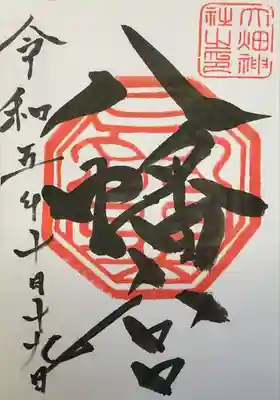 大畑神
社之印
八幡宮
令和五年十月十九日